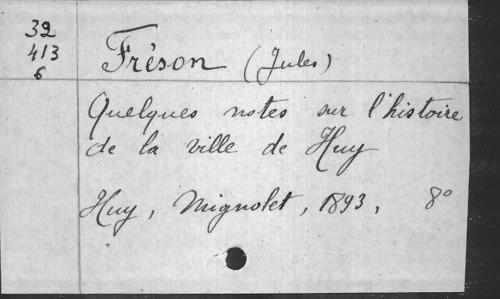 32
413
6
Fréson (Jules)
Quelques notes sur l'histoire
de la ville de Huy
Huy, Mignolet, 1893, 8°